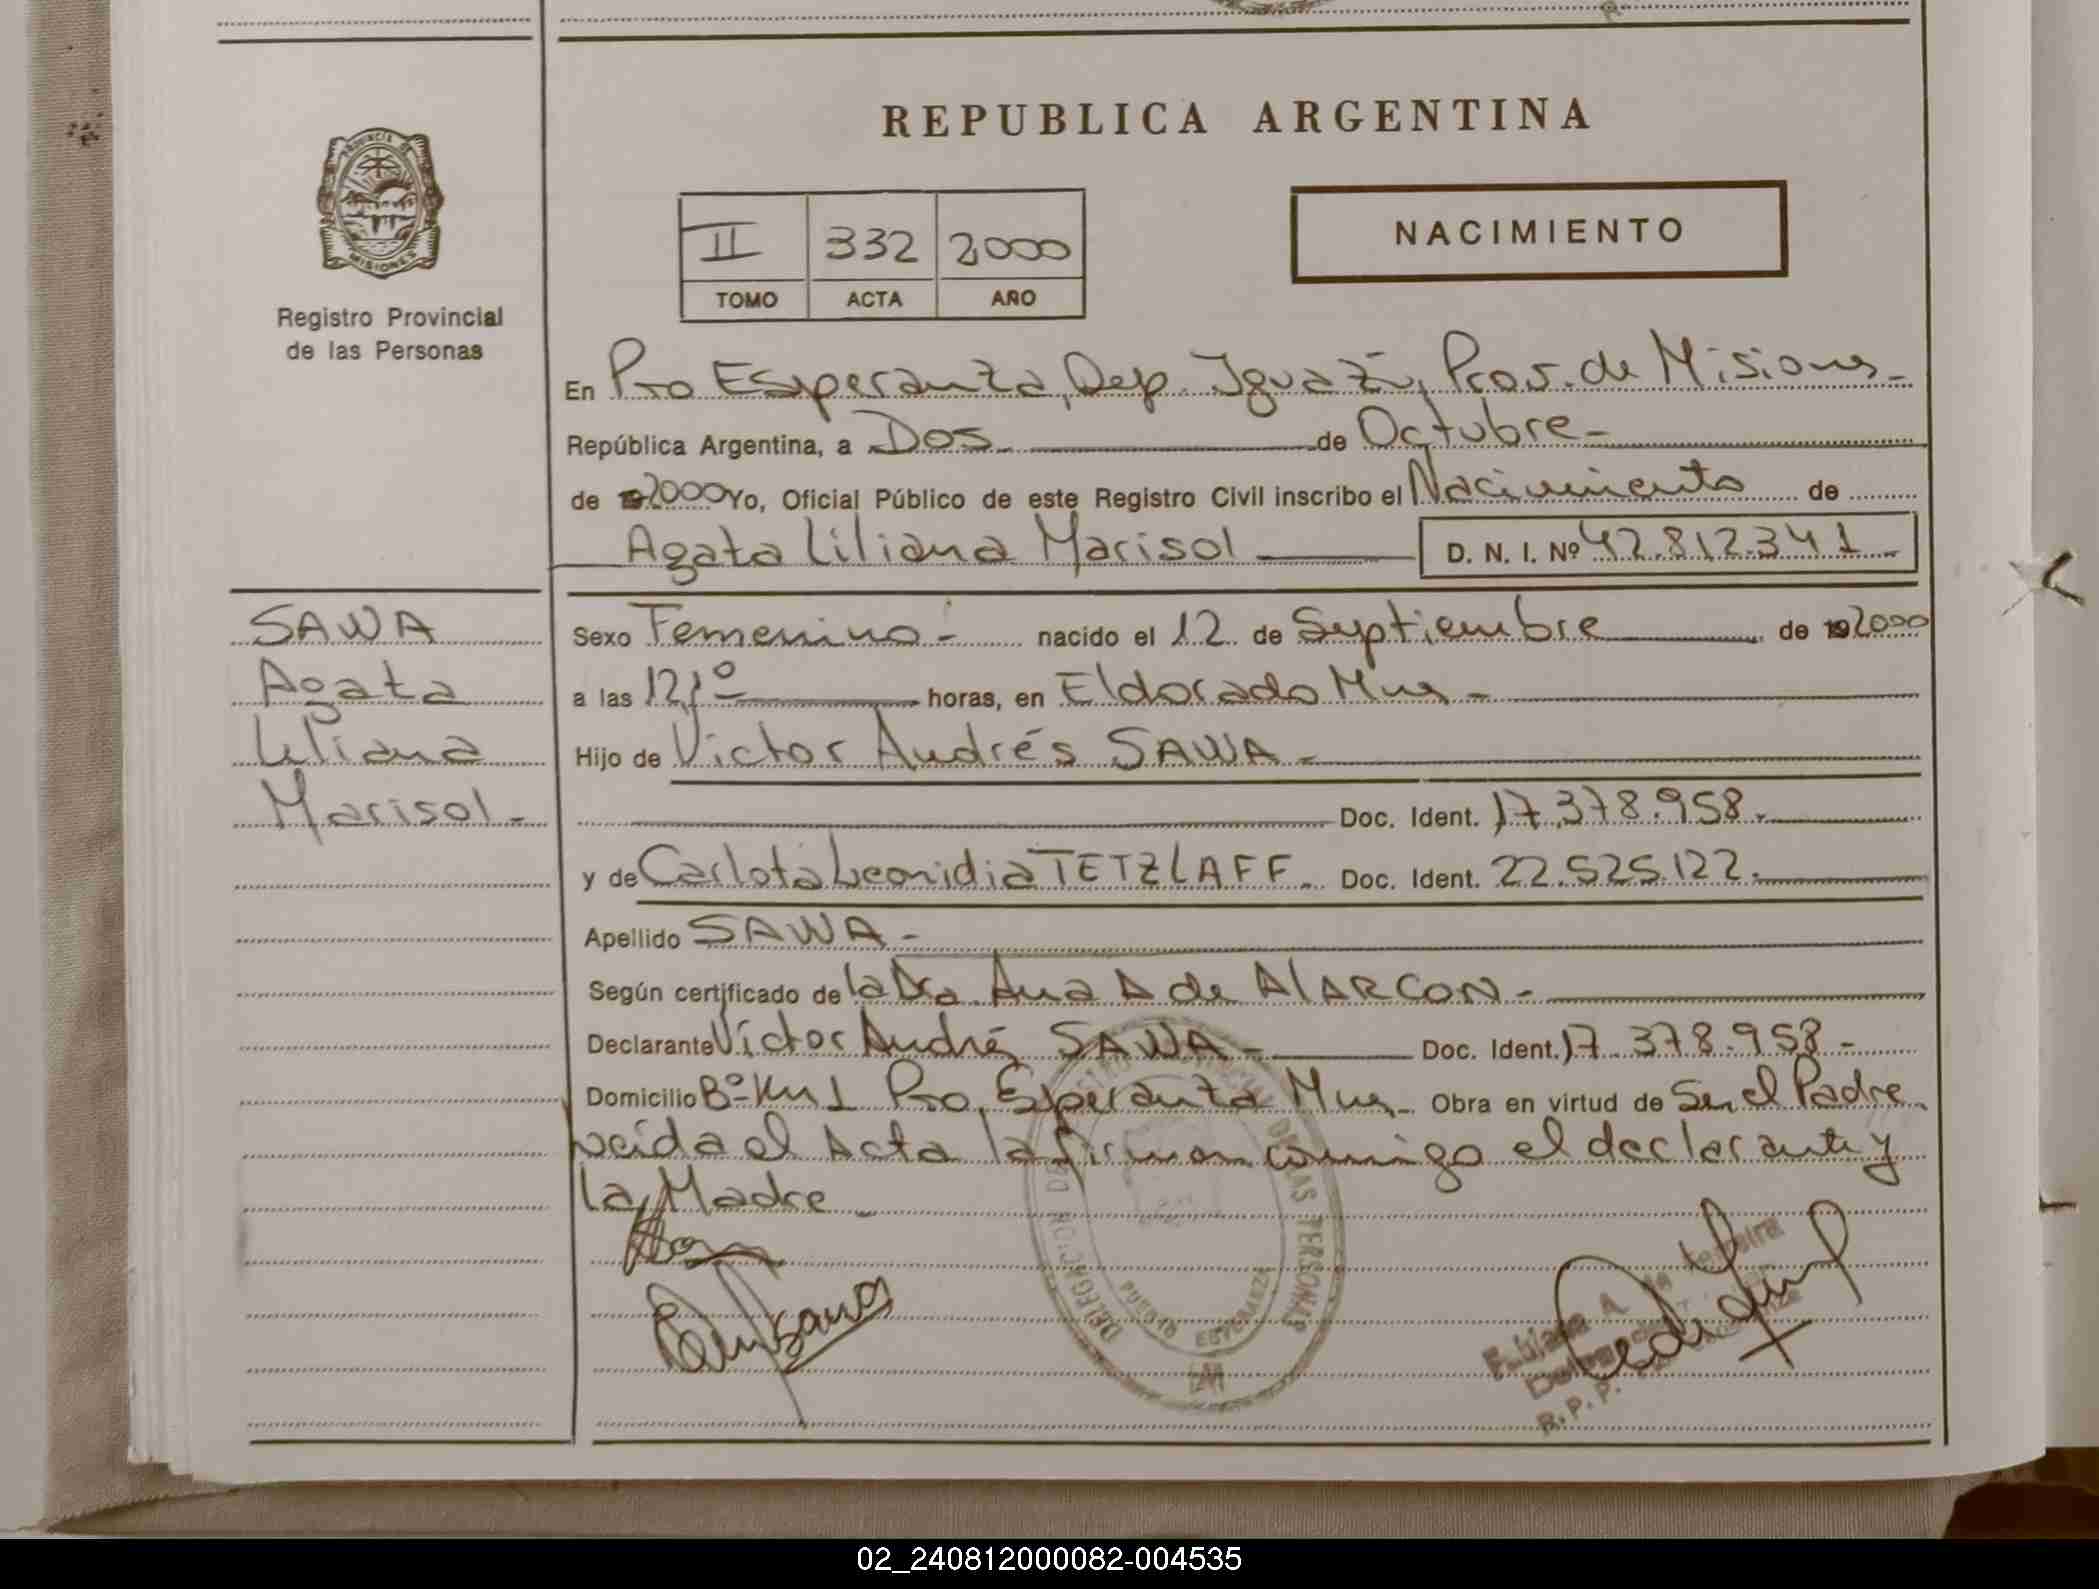 REPUBLICA ARGENTINA
PROVINCIA DE
MISIONES
Registro Provincial
de las Personas
II 332 2000
TOMO ACTA AÑO
NACIMIENTO
En Pto Esperanza, Dep. Iguazú, Prov. de Misiones-
República Argentina, a Dos de Octubre-
de 192000 Yo, Oficial Público de este Registro Civil inscribo el Nacimiento de
Agata Liliana Marisol D. N. I. Nº 42.812.341
SAWA
Agata
Liliana
Marisol-
Sexo Femenino- nacido el 12 de Septiembre de 192000
a las 12,1º horas, en Eldorado Mnes-
Hijo de Victor Andrés SAWA-
Doc. Ident. 17.378.958.
y de Carlota Leonidia TETZLAFF. Doc. Ident. 22.525.122.
Apellido SAWA-
Según certificado de la Dra. Ana A de AlARCON-
Declarante Víctor Andrés SAWA- Doc. Ident. 17.378.958-
Domicilio Bº Km 1 Pto. Esperanza Mnes- Obra en virtud de Ser el Padre
Leída el Acta la firman conmigo el declarante y
la Madre-
DELEGACION DE LAS PERSONAS
PUERTO ESPERANZA
R.P.P.
02_240812000082-004535